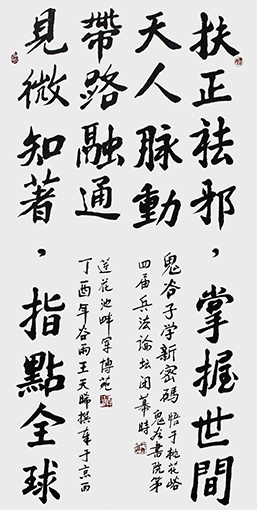 扶正祛邪，掌握世間
天人脈動
帶路融通
見微知著，指點全球
鬼谷子学新密碼
悟于桃花峪
鬼谷書院第
四届兵法論坛闭幕時
莲花池畔军博苑
丁酉年谷雨王天晞撰書于京西